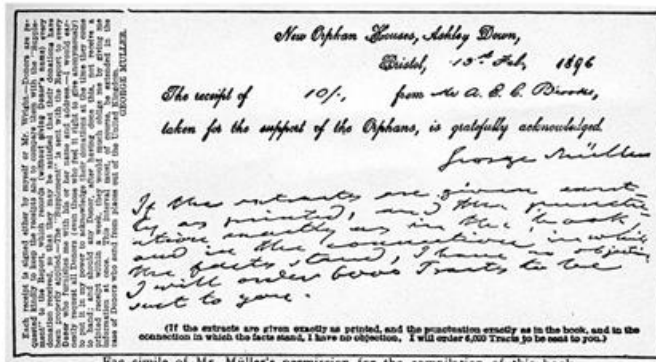 Each receipt is signed either by myself or Mr. Wright.—Donors are re-
quested kindly to keep the receipts and to compare them with the "Supple-
ment" to the Report, which records (without giving Donor's name) every
donation received, so that they may be satisfied that their donations have
been properly applied. The "Supplement" is sent with the Report to every
Donor who furnishes me with his or her name and address.—I would ear-
nestly request all Donors (even those who feel it right to give anonymously)
to put it in my power to acknowledge their donations at the time they come
to hand; and should any Donor, after having done this, not receive a
printed receipt within a week, they would much oblige me by giving me
information at once. This interval must of course, be extended in the
case of Donors who send from places out of the United Kingdom.
GEORGE MULLER.
New Orphan Houses, Ashley Down,
Bristol, 13th Feb, 1896
The receipt of 10/-, from Mr A. E. C. Brooks,
taken for the support of the Orphans, is gratefully acknowledged.
George Müller
If the extracts are given exact-
ly as printed, and the punctu-
ation exactly as in the book
and in the connection in which
the facts stand, I have no objection
I will order 6000 Tracts to be
sent to you.
(If the extracts are given exactly as printed, and the punctuation exactly as in the book, and in the
connection in which the facts stand, I have no objection. I will order 6,000 Tracts to be sent to you.)
Fac simile of Mr. Müller's permission for the compilation of this book.